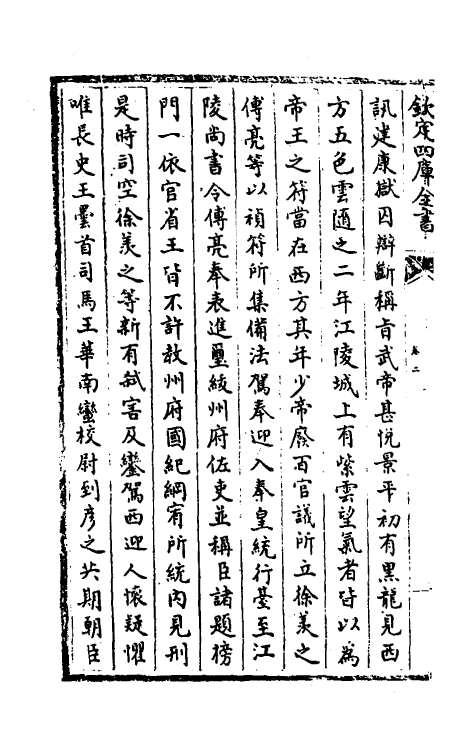 欽定四庫全書
卷二
訊建康獄囚辯斷稱旨武帝甚恱景平初有黑龍見西
方五色雲隨之二年江陵城上有紫雲望氣者皆以為
帝王之符當在西方其年少帝廢百官議所立徐羨之
傅亮等以禎符所集備法駕奉迎入奉皇統行臺至江
陵尚書令傅亮奉表進璽紱州府佐吏並稱臣請題榜
諸門一依宮省王皆不許教州府國紀綱宥所統內見刑
是時司空徐羨之等新有弒害及鑾駕西迎人懷疑懼
唯長史王曇首司馬王華南蠻校尉到彦之共期朝臣